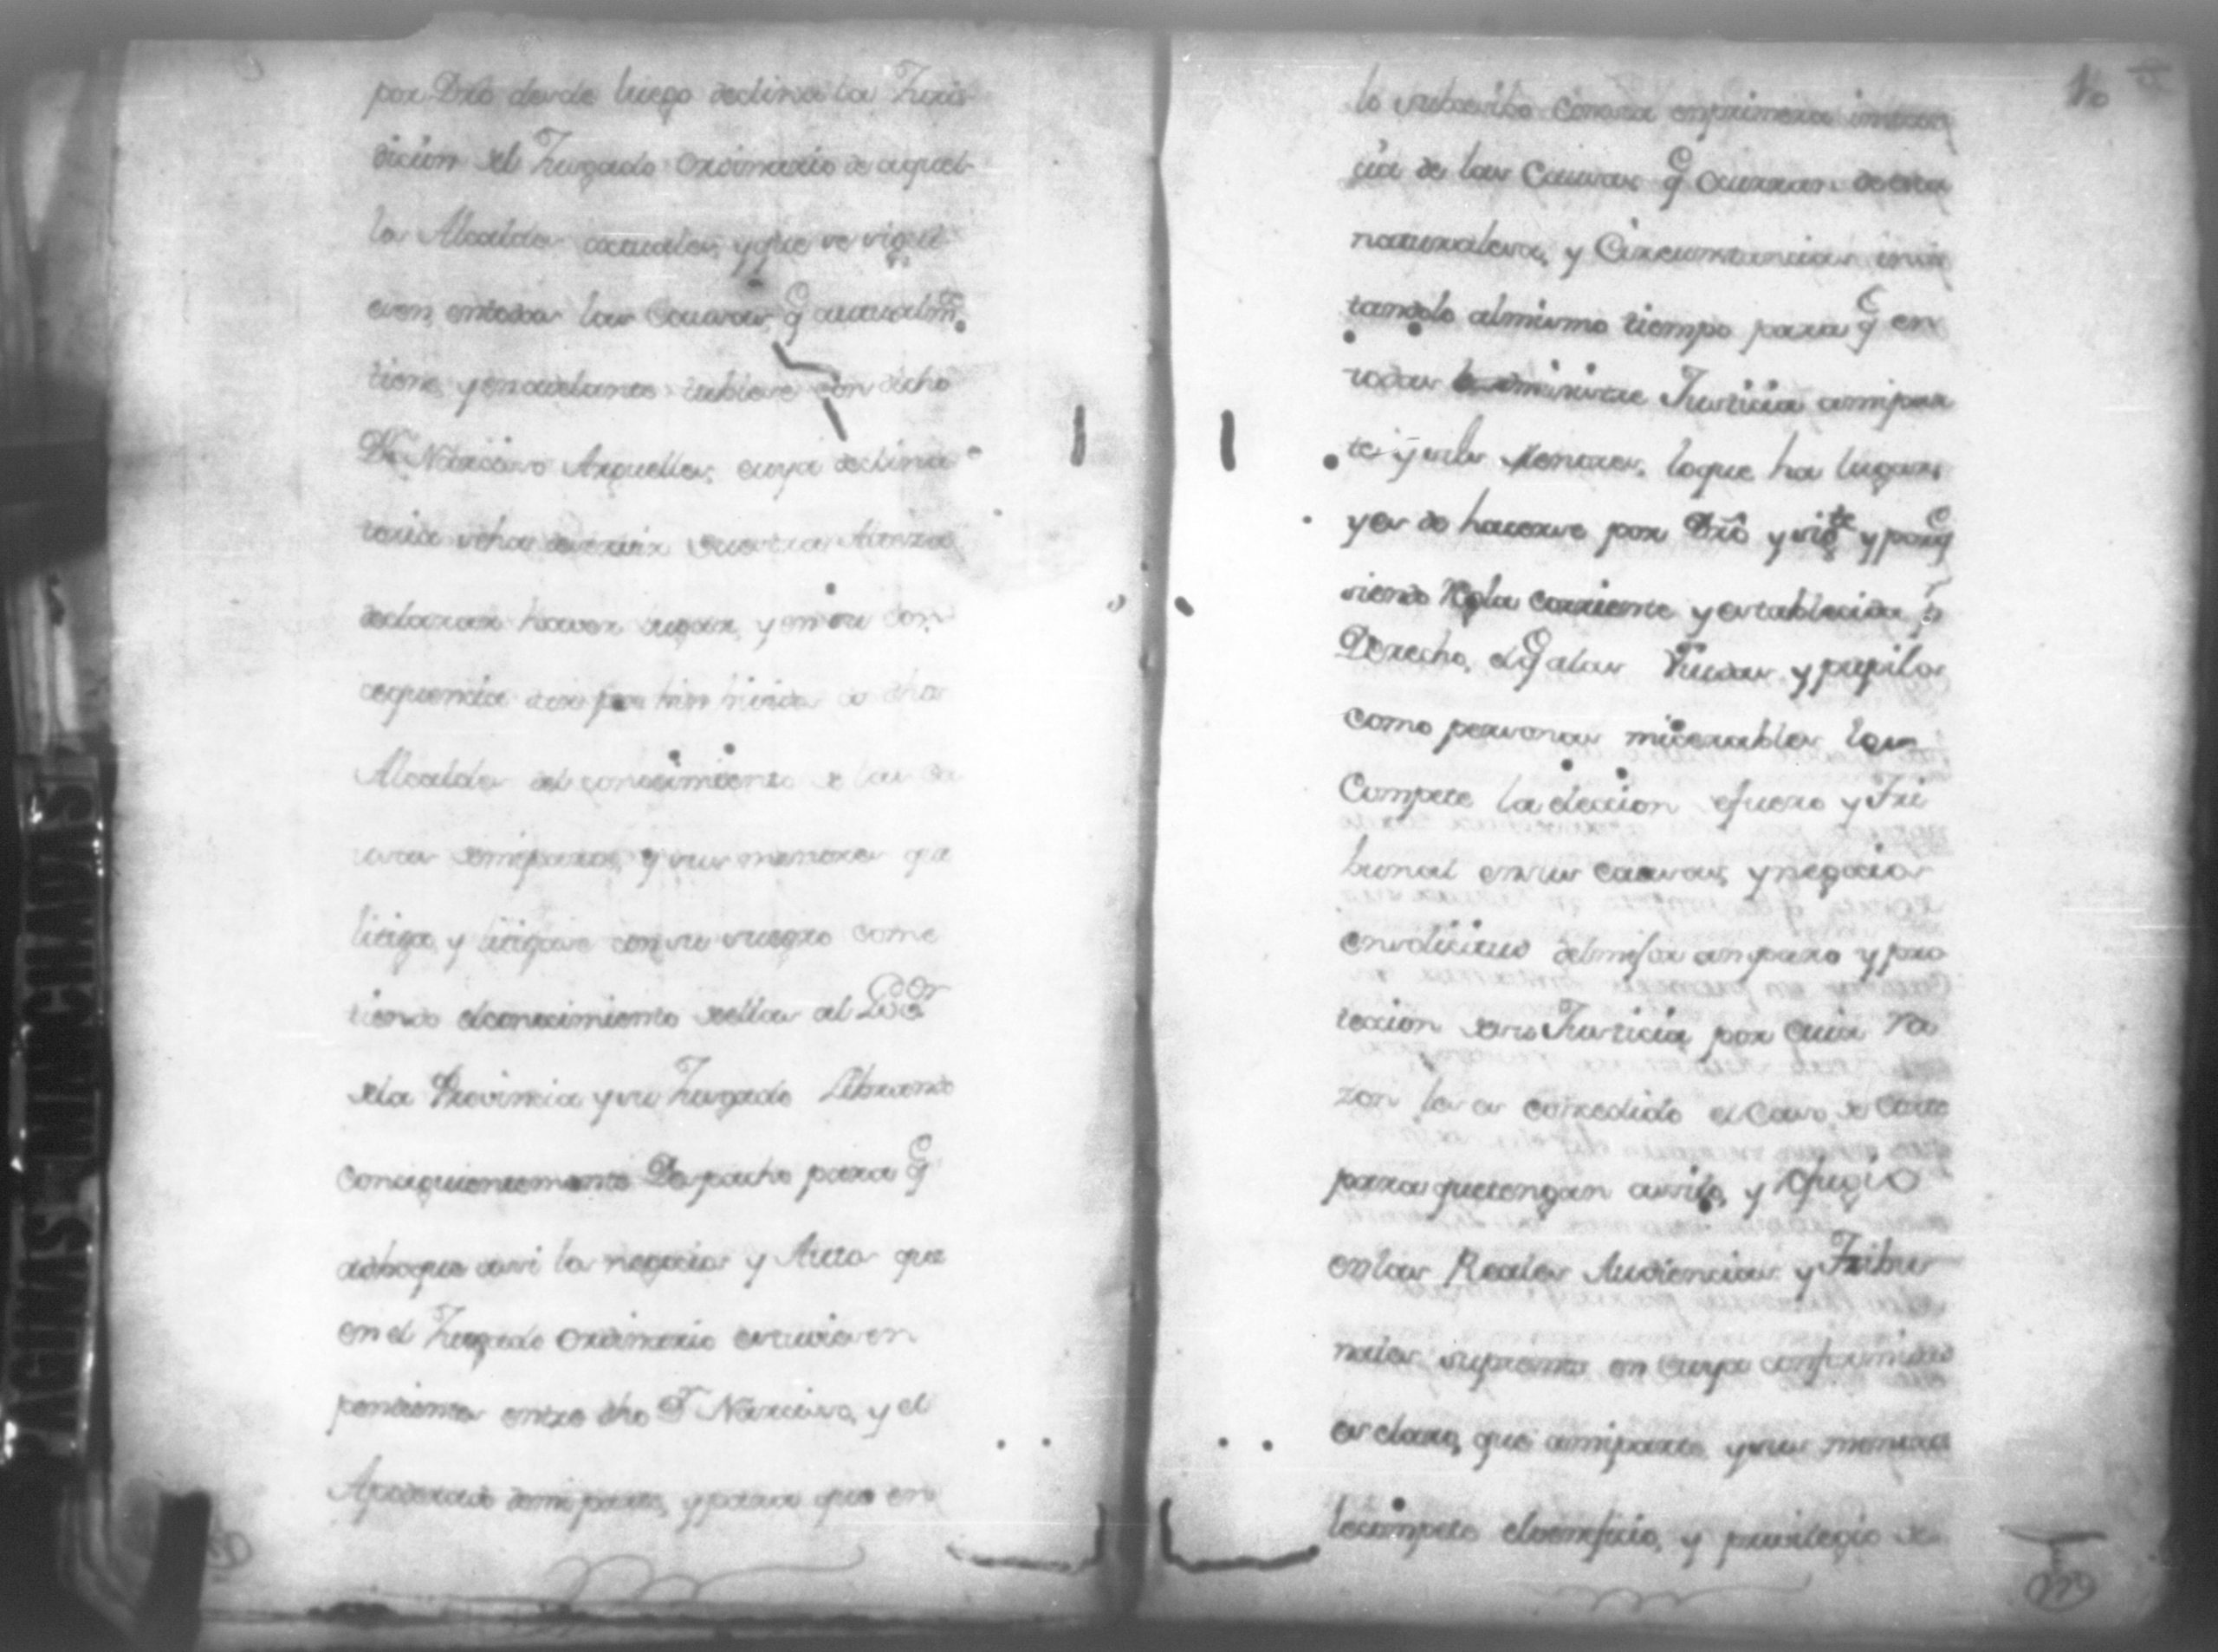 por Dro desde luego declina la Juris-
dicion del Juzgado ordinario de aquel-
los Alcaldes actuales, y que se sigui-
esen, en todas las Causas q actualmte
tiene, y en adelante tubiese con dicho
Dn Narciso Arguelles, cuya declina
toria se ha de servir vuestra Alteza
declarar haver lugar, y en su con-
sequencia dar por hinhividos a dhos
Alcaldes del conocimiento de las ca
usas de mi parte, y sus menores que
litiga, y litigase con su suegro come
tiendo el conocimiento dellas al
dela Provincia y su Juzgado Librando
consiguientemente Despacho para q
adboque assi los negocios y Autos que
en el Juzgado ordinario estuviesen
pendientes entre dho Dn Narciso, y el
Apoderado de mi parte, y para que en
lo subcesibo conosca en primera instan
cia de las Causas q ocurran de esta
naturaleza, y Circunstancias
tandolo al mismo tiempo para q en
todas administre Justicia a mi par
te y sus Menores, lo que ha lugar
y es de hacerse por Dro y sigte y porq
siendo Regla corriente y establecida pr
Derecho, el q a las Viudas y pupilos
como personas miserables les
Compete la eleccion de fuero y Tri
bunal en sus causas, y negocios
en solicitud del mejor amparo y pro
teccion de su Justicia, por cuia ra
zon les es concedido el Caso de Corte
para que tengan assilo, y refugio
en las Reales Audiencias y Tribu
nales supremos en cuya conformidad
es claro, que a mi parte y sus menores
le compete el beneficio, y privilegio de